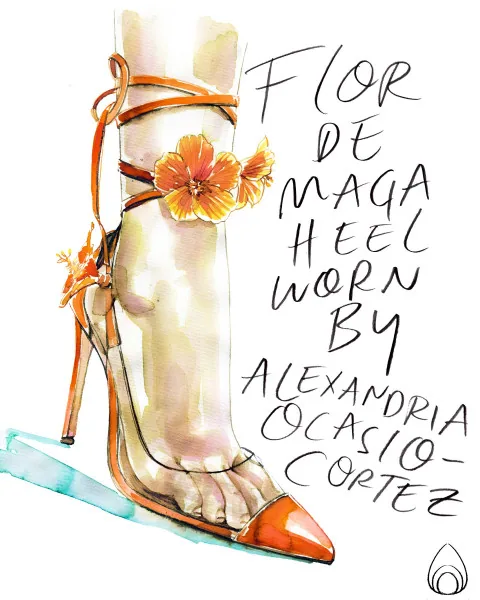 FLOR
DE
MAGA
HEEL
WORN
BY
ALEXANDRIA
OCASIO-
CORTEZ